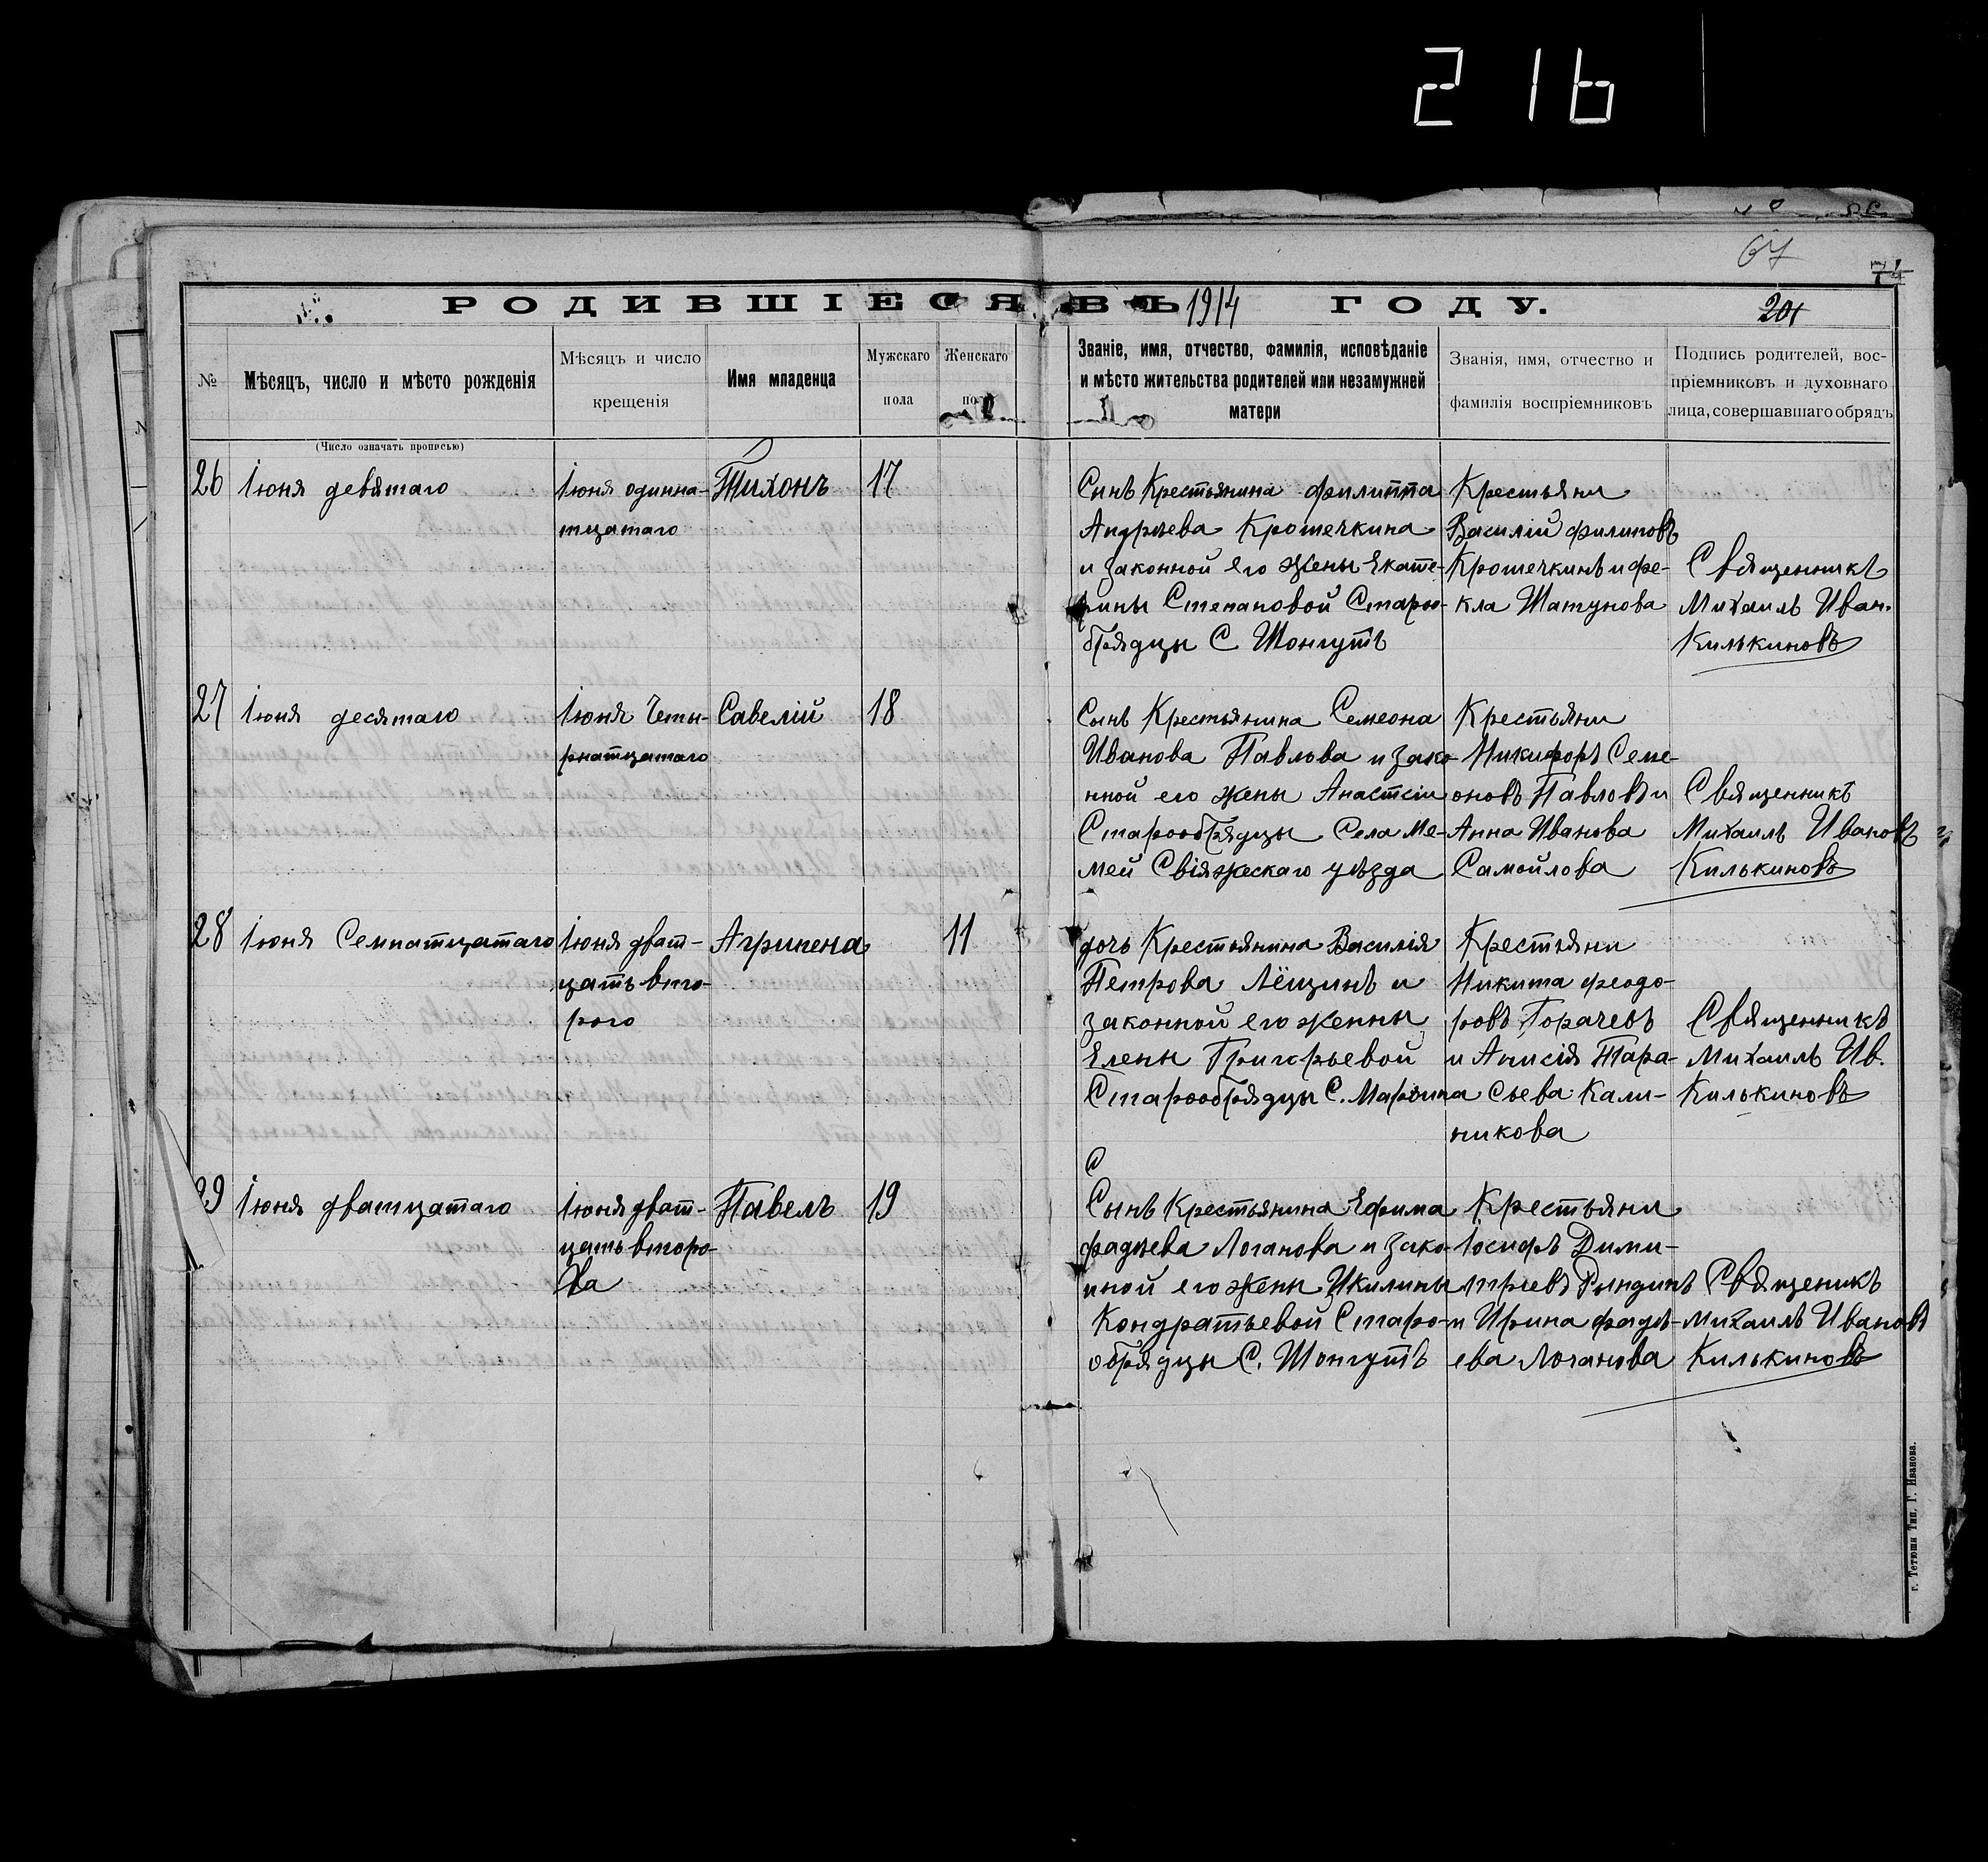 216
67
74
РОДИВШІЕСЯ ВЪ 1914 ГОДУ.
201
№
Мѣсяцъ, число и мѣсто рожденія
Мѣсяцъ и число
крещенія
Имя младенца
Мужскаго
пола
Женскаго
Званіе, имя, отчество, фамилія, исповѣданіе
и мѣсто жительства родителей или незамужней
матери
Званія, имя, отчество и
фамилія воспріемниковъ
Подпись родителей, вос-
пріемниковъ и духовнаго
лица, совершавшаго обрядъ
(Число означать прописью)
26
Іюня девятаго
Іюня одинна-
тцатаго
Тихонъ
17
Сынъ Крестьянина Филиппа
Андреева Крошечкина
и законной его жены Екате-
рины Степановой Старо-
брядцы С. Шонгутъ
Крестьяни
Василій Филиповъ
Крошечкинъ и Фе-
кла Шатунова
Священникъ
Михаилъ Иван.
Килькиновъ
27
Іюня десятаго
Іюня Четы-
рнатцатаго
Савелій
18
Сынъ Крестьянина Семеона
Иванова Павлова и зако-
нной его жены Анастсіи
Старообрядцы Села Ме-
мей Свіяжескаго уѣзда
Крестьяни
Никифоръ Семе-
оновъ Павловъ и
Анна Иванова
Самойлова
Священникъ
Михаилъ Ивановъ
Килькиновъ
28
Іюня Семнатцатаго
Іюня дват-
цать вто-
рого
Агрипена
11
дочь Крестьянина Василія
Петрова Лёщинъ и
законной его женны
Елены Григорьевой
Старообрядцы С.
Крестьяни
Никита Феодо-
ровъ Горачевъ
и Анисія Тара-
сьева Кали-
никова
Священникъ
Михаилъ Ив.
Килькиновъ
29
Іюня дватцатаго
Іюня дват-
цать второ-
ва
Павелъ
19
С
Сынъ Крестьянина Ефима
Фадѣева Логанова и зако-
нной его жены Икилины
Кондратьевой Старо-
обрядцы С. Шонгутъ
Крестьяни
Іосифъ Дими-
тріевъ Рындинъ
и Ирина Фадѣ-
ева Логанова
Священикъ
Михаилъ Ивановъ
Килькиновъ
г. Тетюши Тип. Г. Иванова.